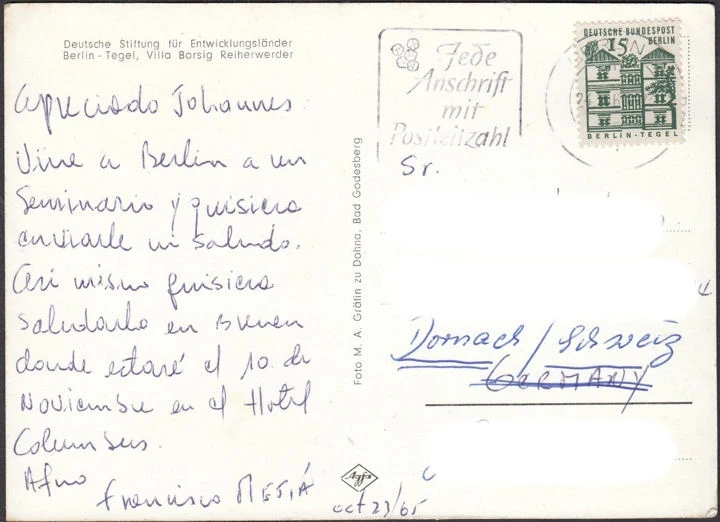 Deutsche Stiftung für Entwicklungsländer
Berlin - Tegel, Villa Borsig Reiherwerder
Apreciado Johannes
Vine a Berlin a un
Seminario y quisiera
enviarle un saludo.
Asi mismo quisiera
saludarlo en Bremen
donde estaré el 10 de
Noviembre en el Hotel
Columbus.
Afmo
Francisco MEJIÁ
Foto M. A. Gräfin zu Dohna, Bad Godesberg
Agfa
oct 23/65
Jede
Anschrift
mit
Postleitzahl
BERLIN
DEUTSCHE BUNDESPOST
15 BERLIN
BERLIN-TEGEL
Sr.
Dornach / Schweiz
GERMANY